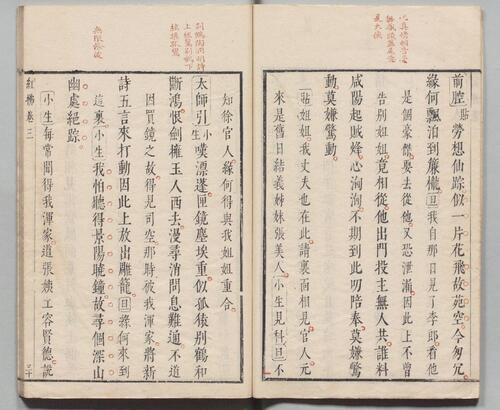 前腔貼勞想仙踪似一片花飛故苑空今匆冗
緣何飄泊到簾櫳旦我自那日見了李郎看他
是個豪傑要去從他又恐泄漏因此上不曾
告別姐姐竟相從他出門投主無人共誰料
咸陽起賊烽心洶洶不期到此叨陪奉莫嫌驚
動莫嫌驚動
貼姐姐我丈夫也在此請裏面相見官人元
來是舊日結義姊妹張美人小生見科旦不
知徐官人緣何得與我姐姐重合
太師引小生嘆漂蓬匣鏡塵埃重似孤猿别鶴和
斷鴻恨劍擁玉人西去漫尋消問息難通不道
因買鏡之故得見司空那時破我渾家將新
詩五言來打動因此上放出雕龍旦緣何來到
這裏小生我怕聽得景陽曉鐘故尋個深山
幽處絕踪
小生每常間得我渾家道張姨工容賢德說
紅拂卷三
無限徐波